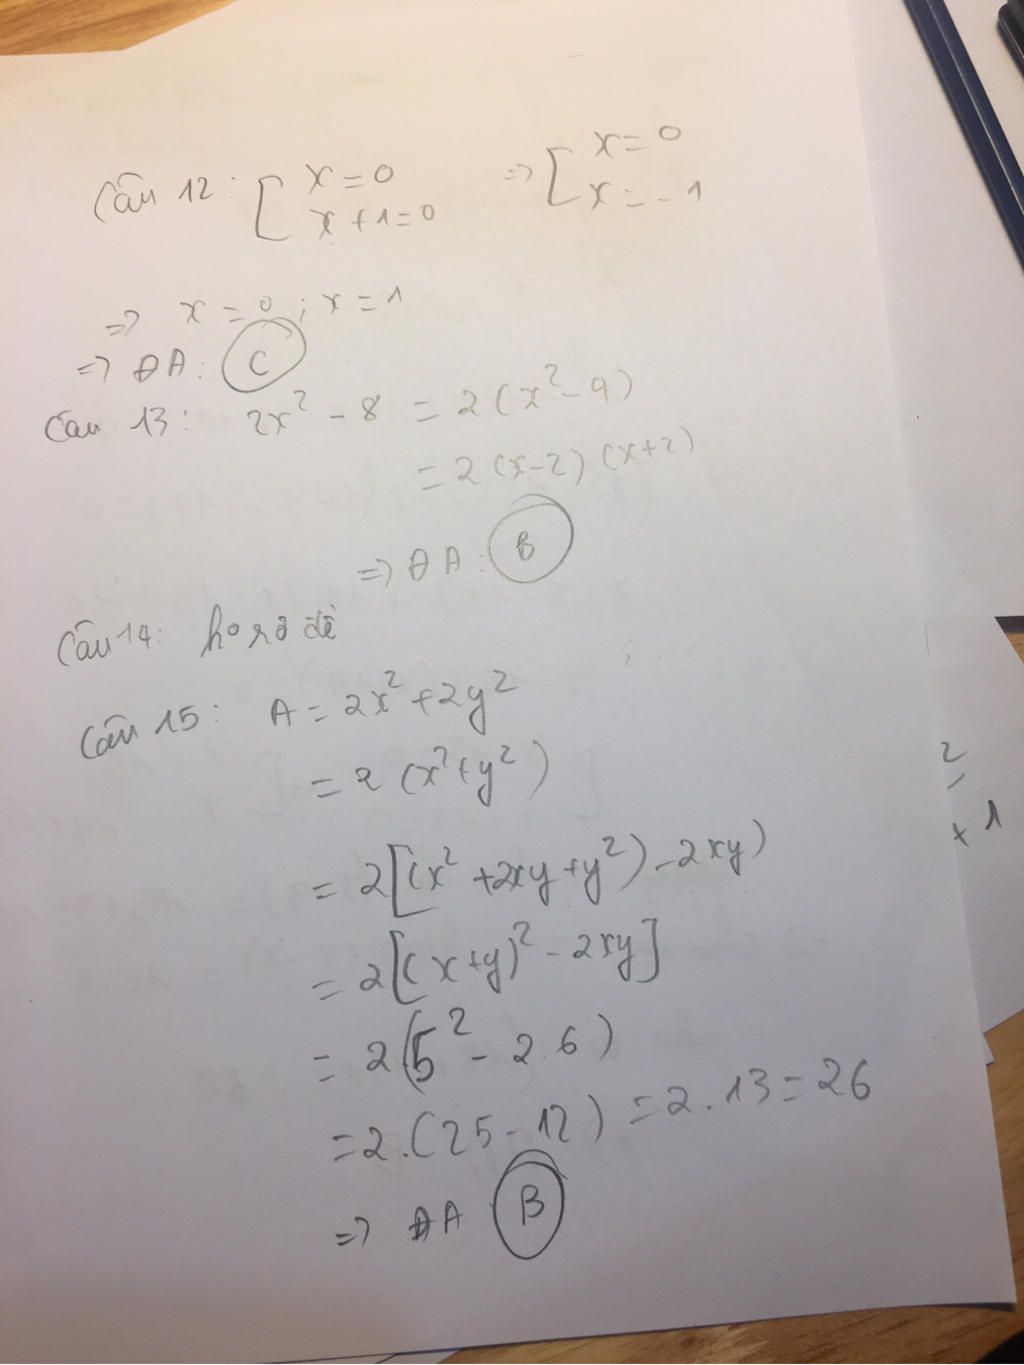 Câu 12: [ x = 0 => [ x = 0
x + 1 = 0 x = - 1
=> x = 0 ; x = 1
=> ĐA: C
Câu 13: 2x² - 8 = 2(x² - 9)
= 2(x-2)(x+2)
=> ĐA: B
Câu 14: đề
Câu 15: A = 2x² + 2y²
= 2(x² + y²)
= 2[(x² + 2xy + y²) - 2xy)
= 2[(x+y)² - 2xy]
= 2(5² - 2.6)
= 2.(25 - 12) = 2.13 = 26
=> ĐA B
2
x 1